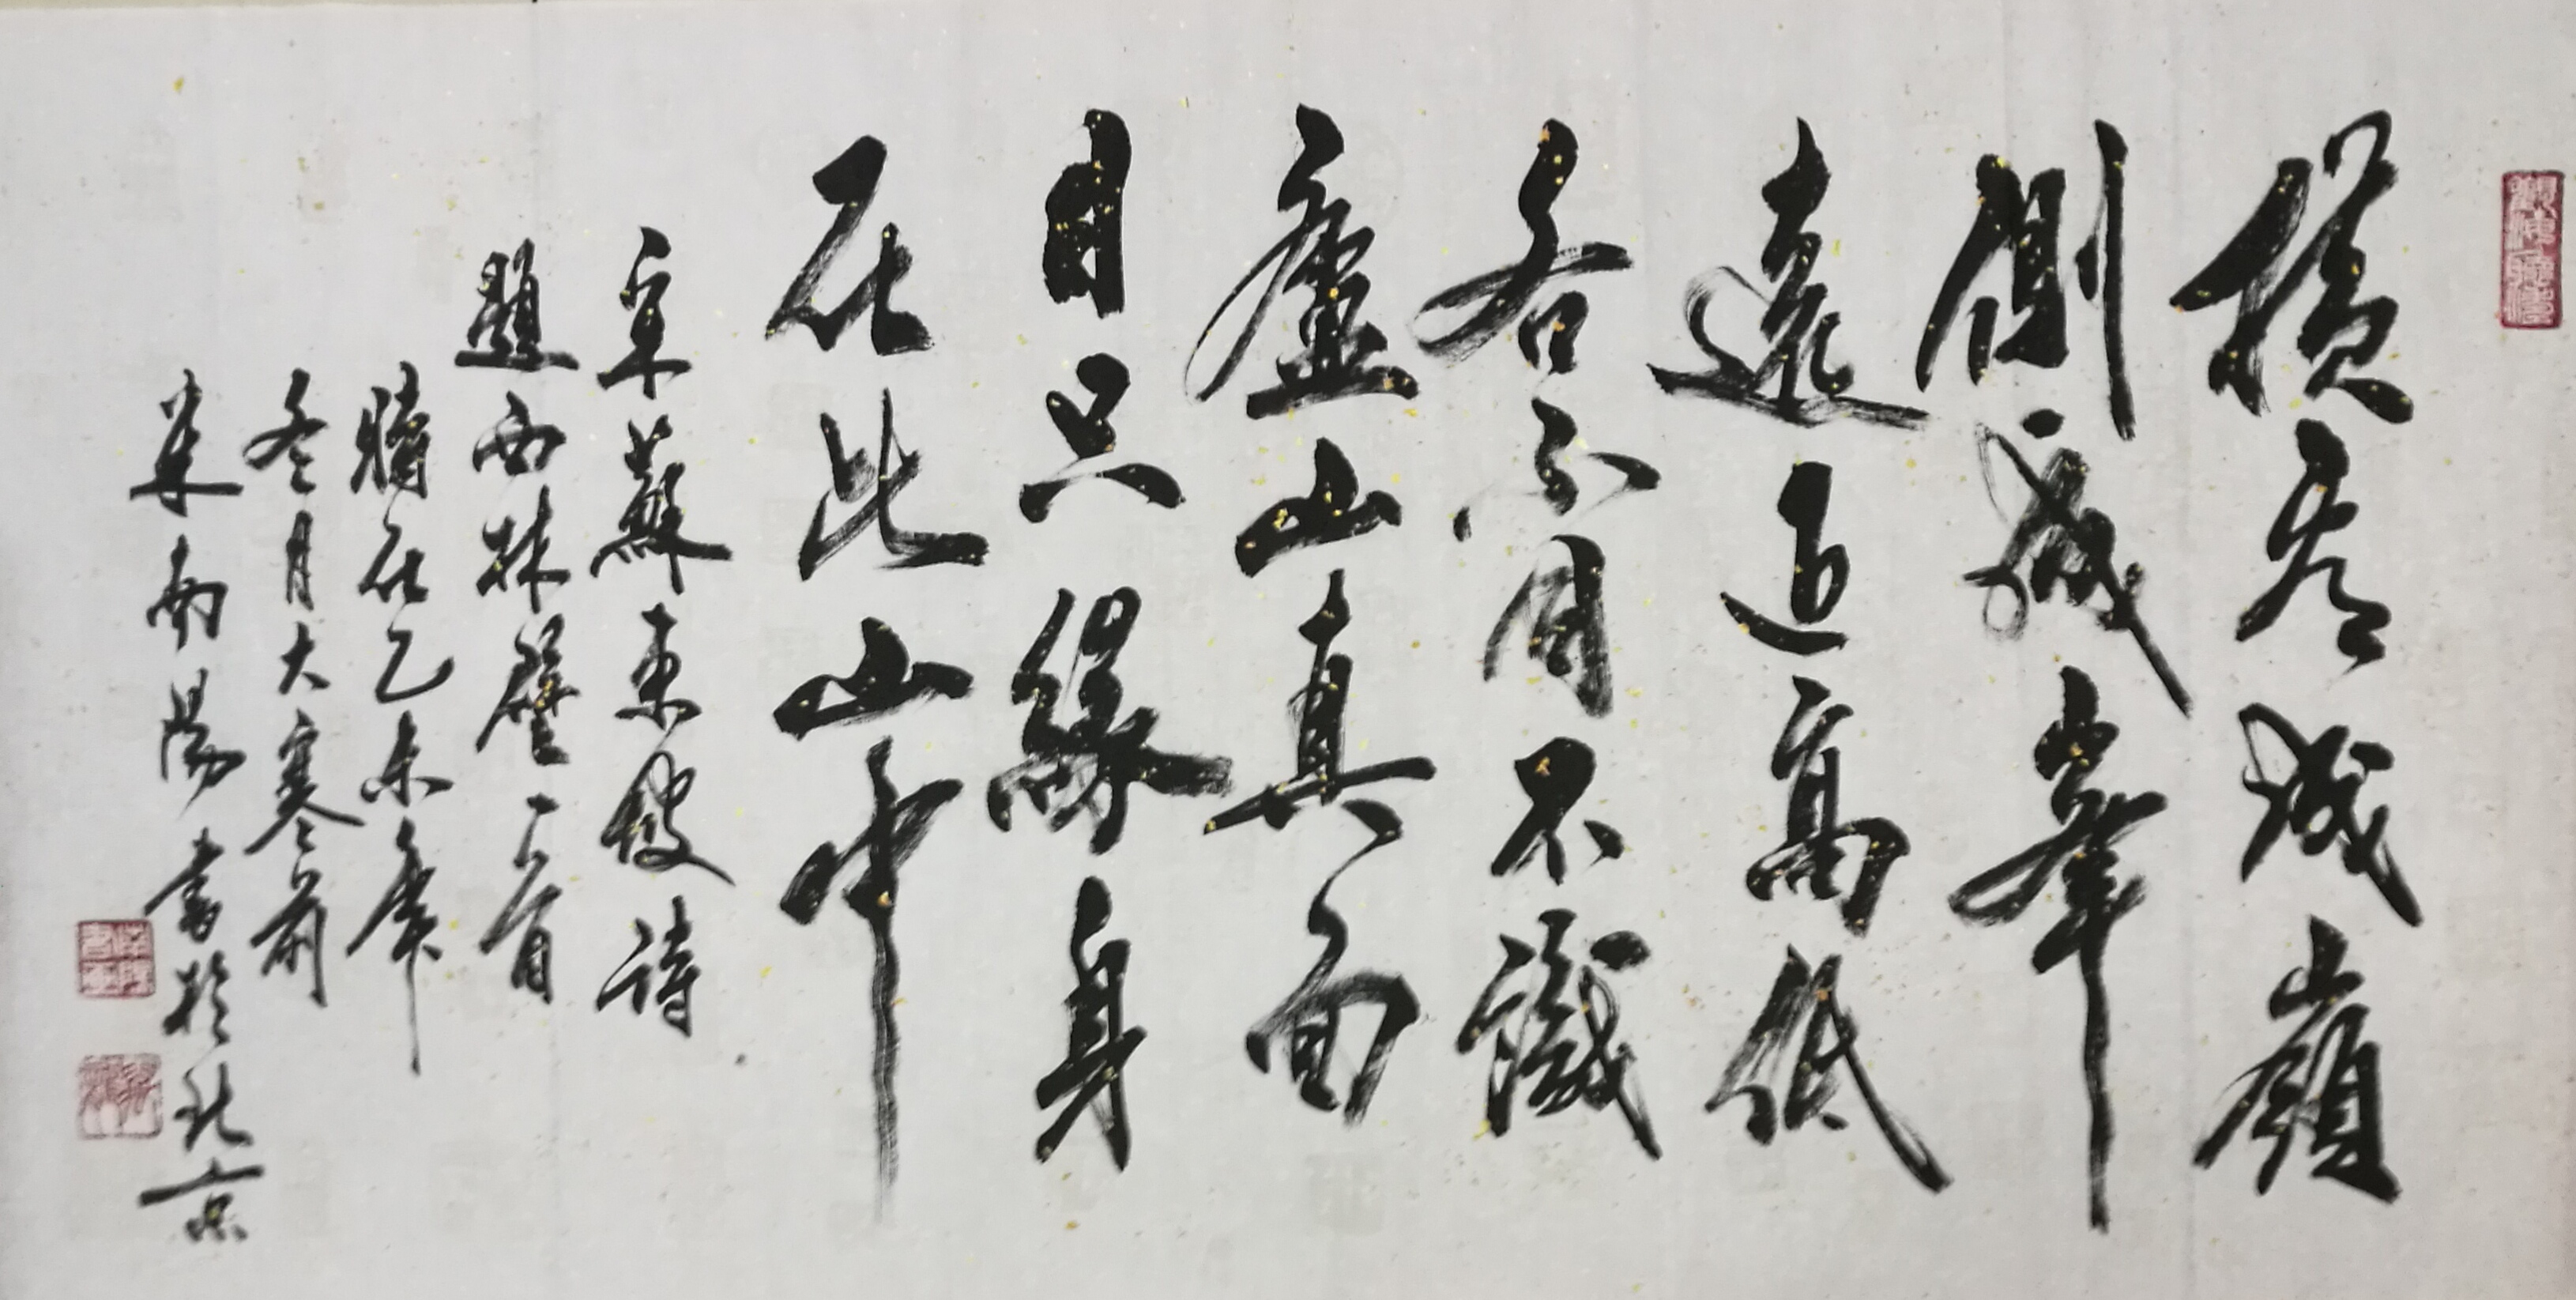 橫看成嶺
側成峯
遠近高低
各不同不識
廬山真面
目只緣身
在此山中
宋蘇東坡詩
題西林壁一首
在乙未年
冬月大寒前
米南陽書於北京